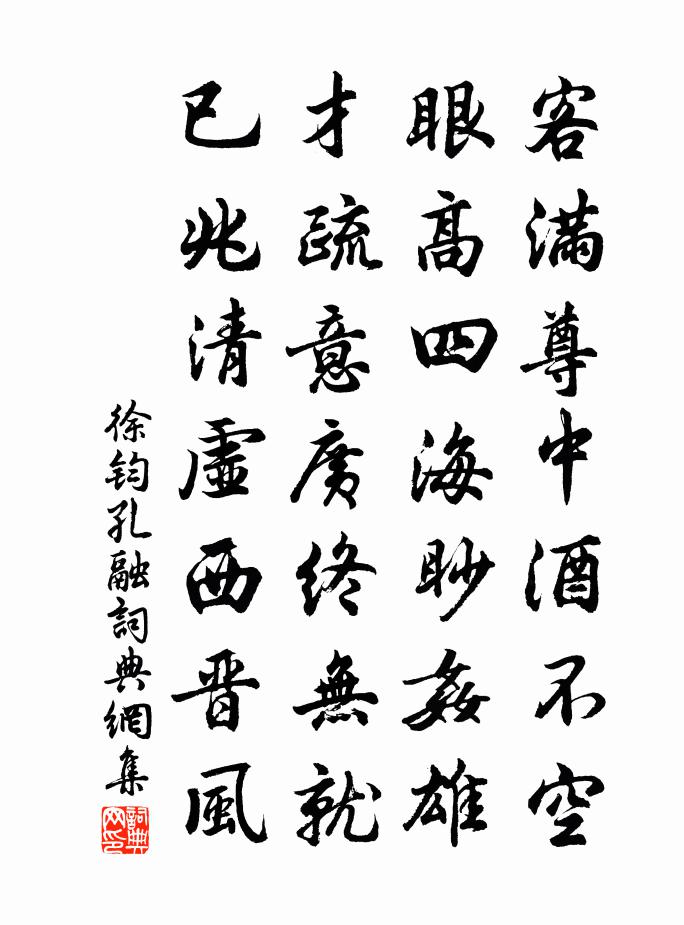 客滿尊中酒不空
眼高四海眇姦雄
才疏意廣終無就
已兆清虛西晋風
徐鈞孔融詞典網集
詞典网印